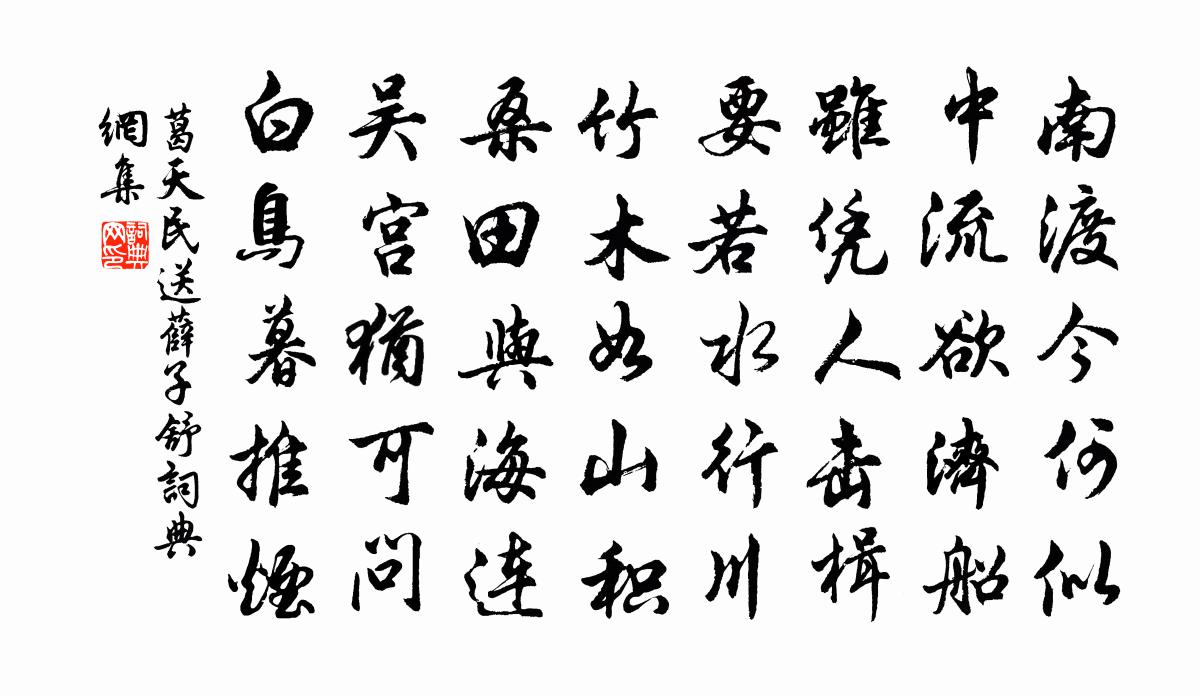 南渡今何似
中流欲濟船
雖凭人击楫
要若水行川
竹木如山积
桑田與海連
吴宫猶可問
白鳥暮推煙
葛天民送薛子舒詞典
網集
詞典网印